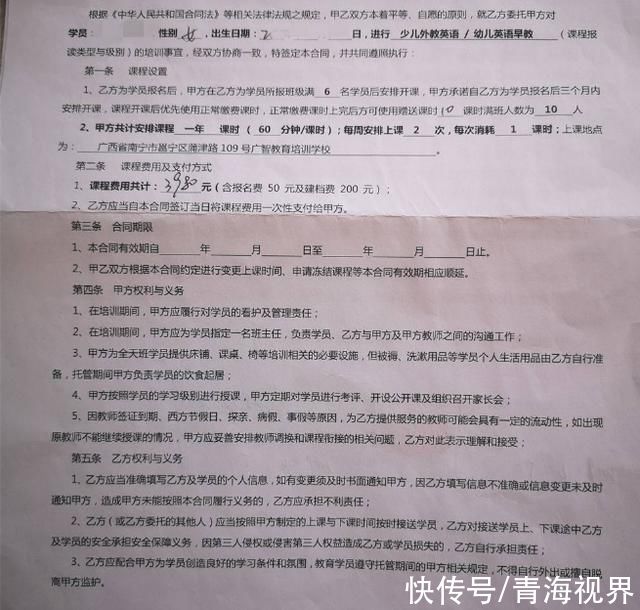 根据《中华人民共和国合同法》等相关法律法规之规定，甲乙双方本着平等、自愿的原则，就乙方委托甲方对
学员： 性别 女 ，出生日期： 日，进行 少儿外教英语 / 幼儿英语早教 （课程报
读类型与级别）的培训事宜，经双方协商一致，特签定本合同，并共同遵照执行：
第一条 课程设置
1、乙方为学员报名后，甲方在乙方为学员所报班级满 6 名学员后安排开课，甲方承诺自乙方为学员报名后三个月内
安排开课，课程开课后优先使用正常缴费课时，正常缴费课时上完后方可使用赠送课时（0 课时满班人数为 10 人
2、甲方共计安排课程 一年 课时（ 60 分钟/课时）；每周安排上课 2 次，每次消耗 1 课时；上课地点
为： 广西省南宁市邕宁区蒲津路 109 号广智教育培训学校 。
第二条 课程费用及支付方式
1、课程费用共计： 3980 元（含报名费 50 元及建档费 200 元）；
2、乙方应当自本合同签订当日将课程费用一次性支付给甲方。
第三条 合同期限
1、本合同有效期自 年 月 日至 年 月 日止。
2、甲乙双方根据本合同约定进行变更上课时间、申请冻结课程等本合同有效期相应顺延。
第四条 甲方权利与义务
1、在培训期间，甲方应履行对学员的看护及管理责任；
2、在培训期间，甲方应为学员指定一名班主任，负责学员、乙方与甲方及甲方教师之间的沟通工作；
3、甲方为全天班学员提供床铺、课桌、椅等培训相关的必要设施，但被褥、洗漱用品等学员个人生活用品由乙方自行准
备，托管期间甲方负责学员的饮食起居；
4、甲方按照学员的学习级别进行授课，甲方定期对学员进行考评、开设公开课及组织召开家长会；
5、因教师签证到期、西方节假日、探亲、病假、事假等原因，为乙方提供服务的教师可能会具有一定的流动性，如出现
原教师不能继续授课的情况，甲方应妥善安排教师调换和课程衔接的相关问题，乙方对此表示理解和接受；
第五条 乙方权利与义务
1、乙方应当准确填写乙方及学员的个人信息，如有变更须及时书面通知甲方，因乙方填写信息不准确或信息变更未及时
通知甲方，造成甲方未能按照本合同履行义务的，乙方应承担不利责任；
2、乙方（或乙方委托的其他人）应当按照甲方制定的上课与下课时间按时接送学员，乙方对接送学员上、下课途中乙方
及学员的安全承担安全保障义务，因第三人侵权或侵害第三人权益造成乙方或学员损失的，乙方自行承担责任；
3、乙方应配合甲方为学员创造良好的学习条件和氛围，教育学员遵守托管期间的甲方相关规定，不得自行外出或擅自脱
离甲方监护。
快传号/青海视界